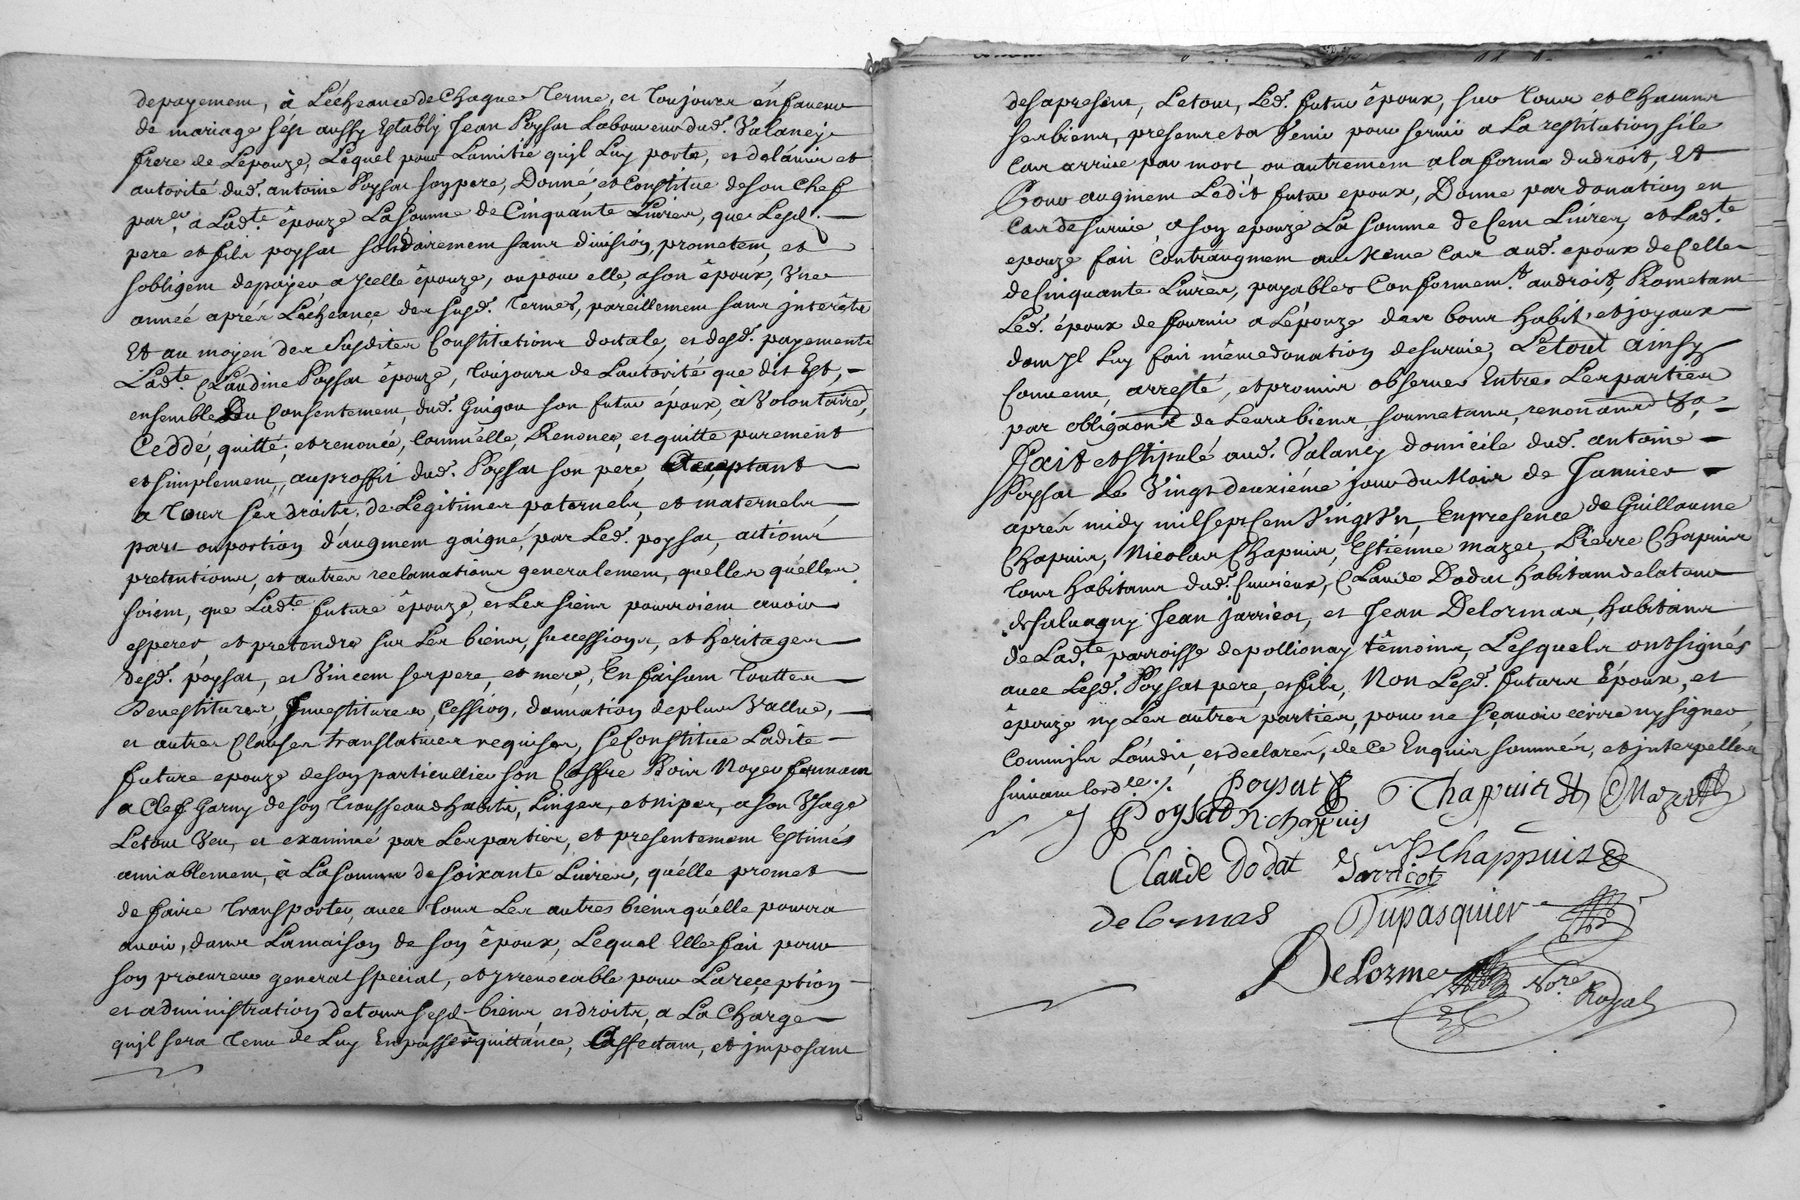 depayement, à Lécheance de Chaque Terme, et Toujours en faveur
de mariage s'est aussy Estably Jean Poysat Laboureur dud. Valancy
frere de Lepouze, Lequel pour Lamitie qu'jl Luy porte, et delavis et
autorité dud. antoine Poysat son pere, Donné, et Constitue deson Chef
par.er a Lad.te épouze La somme de Cinquante Livres, que Lesd. —
pere et fils poysat solidairement sans division, prometent, et —
sobligent depayer a jcelle épouze, ou pour elle, a son époux, Une
année aprés Lécheance des susd. Termes, pareillement sans jnterêts
Et au moyen des Susdites Constitutions dotale, et desd. payements
Lad.te Claudine Poysat épouze, Toujours de Lautorité que dit Est, —
ensemble Du Consentement dud. Guigou son futur époux, à Volontaire.t
Ceddé, quitté, et renoncé, Comm'elle, Renonce, et quitte purement
et simplement, au proffit dud. Poysat son pere, Acceptant —
a Tous ses droits de Legitimes paternels, et maternels —
part ou portion d'augment gaigné, par Led. poysat, actions
pretentions, et autres reclamations generalement, quelles qu'elles
soient, que Lad.te future épouze, et Les siens pourroient avoir —
esperer, et pretendre sur Les biens, successions, et héritages —
desd. poysat, et Vincent ses pere, et mere, En faisant Touttes —
Devestitures, jnvestitures, Cession, donnation de plus Vallue, —
et autres Clauses translatives requises, se Constitue Ladite —
future epouze deson particullier son Coffre Bois Noyer fermant
a Clef Garny de son Trousseau d'habits, Linges, et nipes, a son Usage
Letout Veu, et examiné par Les parties, et presentement Estimés
amiablement, à La somme de soixante Livres, qu'elle promet —
de faire Transporter, avec Tous Les autres biens qu'elle pourra
avoir, dans Lamaison de son époux, Lequel Elle fait pour
son procureur general special, et jrrevocable pour La reception —
et administration de tous sesd. biens, et droits, a La Charge —
qu'jl sera Tenu de Luy En passer quittance, Affectant, et jmposant
desapresent, Letout, Led. futur époux, sur Tous et Chacuns
ses biens, presents et a Venir pour servir a La restitution si le
Cas arrive par mort ou autrement a la forme du droit, Et
Pour augment Ledit futur epoux, Donne par donation en
Cas de survie, a son epouze La somme de Cent Livres, et Lad.te
epouze fait Contraugment au même Cas aud. epoux de Celle
de Cinquante Livres, payables Conformem.t au droit, Prometant
Led. époux de fournir a Lépouze des bons habits et joyaux —
dont jl Luy fait même donation de survie, Letout ainsy
Convenu, arresté, et promis observer Entre Les parties
par obligaons de Leurs biens, soumetans, renonans &a, —
Fait et stipulé aud. Valancy domicile dud. antoine —
Poysat Le Vingt deuxiéme jour du Mois de Janvier —
aprés midy mil sept Cent Vingt Un, En presence de Guillaume
Chapuis, Nicolas Chapuis, Estienne mazet, Pierre Chapuis
Tous habitans dud. Curieux, Claude Dodat habitant de latour
de saluagny Jean jarricot, et Jean Delormas, habitans
de Lad.te parroisse de pollionay témoins, Lesquels ont signés
avec Lesd. Poysat pere, et fils, Non Lesd. futurs Époux, et
épouze ny Les autres parties, pour ne sçavoir ecrire ny signer
Comm'jls L'ondit, et declaré, de Ce Enquis sommés, et jnterpellés
suivant Lord.ce ./.
Poysat G Chappuis E Mazet
J Poysat N chapuis
P Chappuis
Claude Dodat J Jarricot
delormas Dupasquier
Delorme No.re Royal